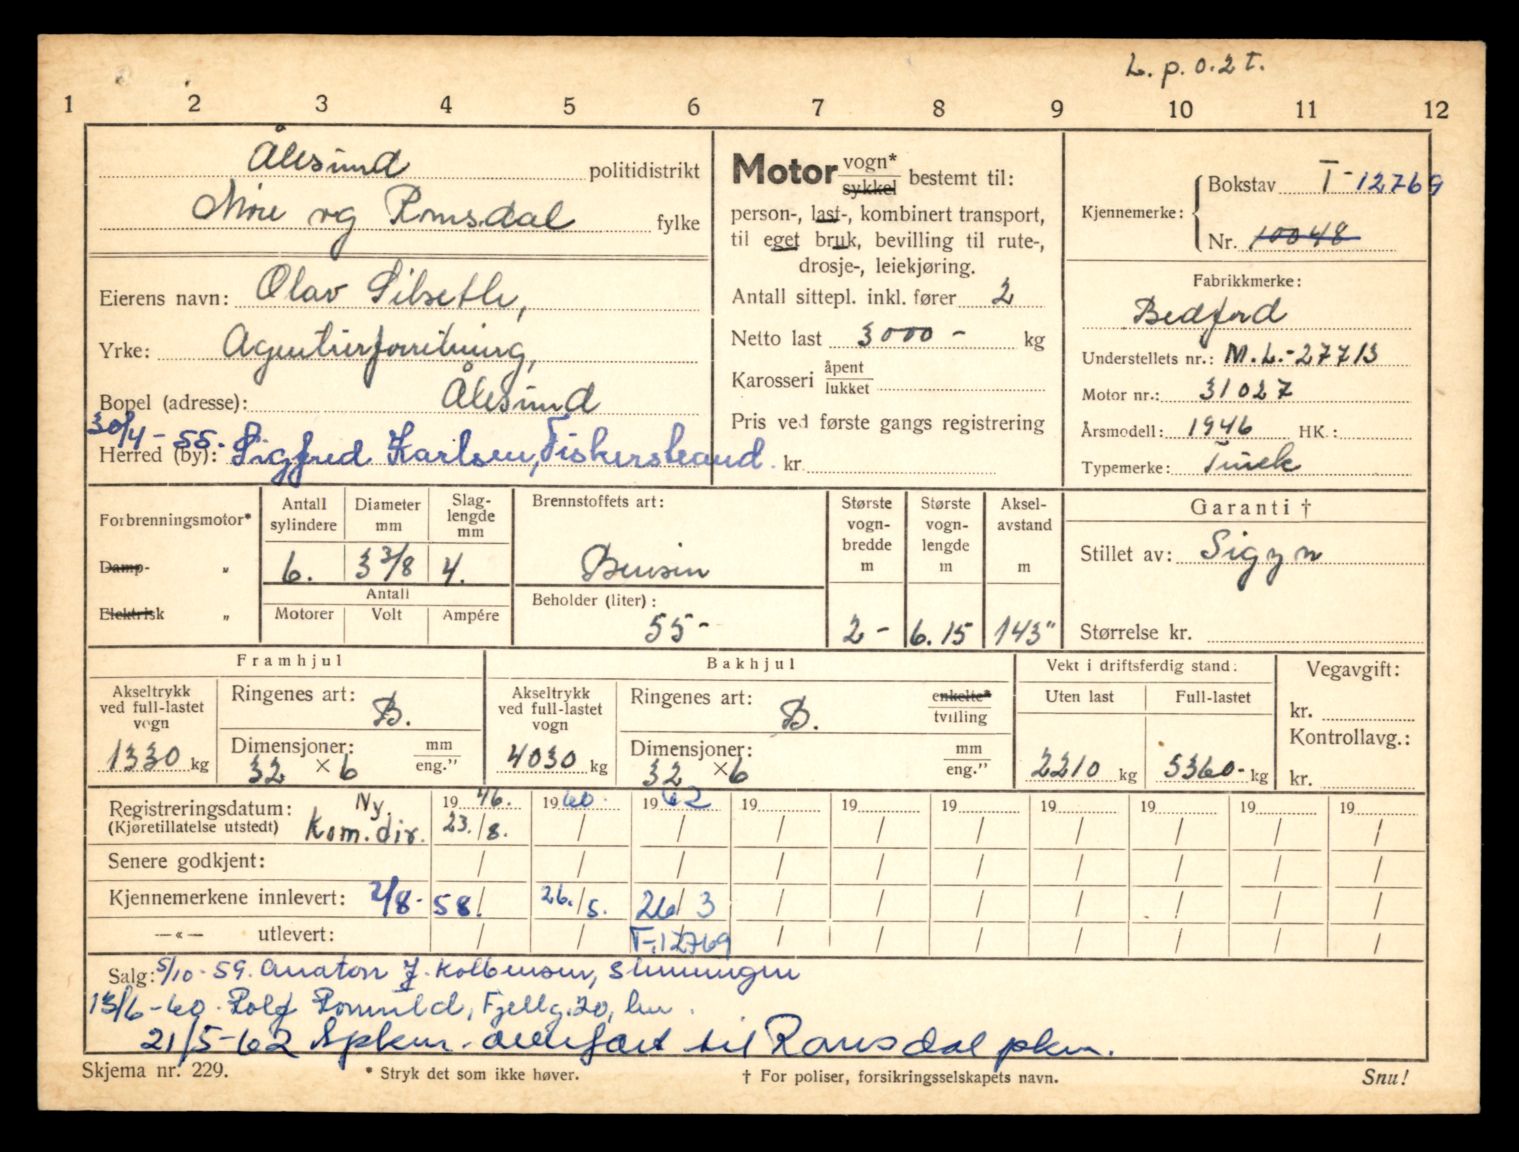 L. p. 0.2 t.
1 2 3 4 5 6 7 8 9 10 11 12
Ålesund politidistrikt
Møre og Romsdal fylke
Eierens navn: Olav Silseth,
Yrke: Agenturforretning,
Bopel (adresse): Ålesund
30/4-55. Sigfred Karlsen, Fiskerstrand.
Herred (by):
Motor vogn* sykkel bestemt til:
person-, last-, kombinert transport,
til eget bruk, bevilling til rute-,
drosje-, leiekjøring.
Antall sittepl. inkl. fører 2
Netto last 3000 - kg
Karosseri åpent lukket
Pris ved første gangs registrering
kr.
Kjennemerke: Bokstav T-12769
Nr. 10048
Fabrikkmerke:
Bedford
Understellets nr.: M.L.-27713
Motor nr.: 31027
Årsmodell: 1946 HK.:
Typemerke: Truck
Forbrenningsmotor*
Damp- „
Elektrisk „
Antall sylindere 6.
Diameter mm 3 3/8
Slag-lengde mm 4.
Antall
Motorer Volt Ampére
Brennstoffets art:
Bensin
Beholder (liter):
55-
Største vogn-bredde m 2-
Største vogn-lengde m 6.15
Aksel-avstand m 143"
Garanti †
Stillet av: Sigyn
Størrelse kr.
Framhjul
Akseltrykk ved full-lastet vogn 1330 kg
Ringenes art: B.
Dimensjoner: 32 × 6 mm eng."
Bakhjul
Akseltrykk ved full-lastet vogn 4030 kg
Ringenes art: B. enkelte* tvilling
Dimensjoner: 32 × 6 mm eng."
Vekt i driftsferdig stand:
Uten last Full-lastet
2210 kg 5360- kg
Vegavgift:
kr.
Kontrollavg.:
kr.
Registreringsdatum: Ny, 19 46. 19 60. 19 62 19 19 19 19 19 19 19
(Kjøretillatelse utstedt) Kom.dir. 23./8. / / / / / / / / /
Senere godkjent: / / / / / / / / / /
Kjennemerkene innlevert: 2/8-58. 26./5. 26/3 / / / / / / /
—«— utlevert: / / T-12769 / / / / / / /
Salg: 5/10-59. Anaton J. Kolbensen, Slinningen
13/6-60. Rolf Romuld, Fjellg. 20, her.
21/5-62 Apkm. overført til Romsdal pkm.
Skjema nr. 229.
* Stryk det som ikke høver.
† For poliser, forsikringsselskapets navn.
Snu!